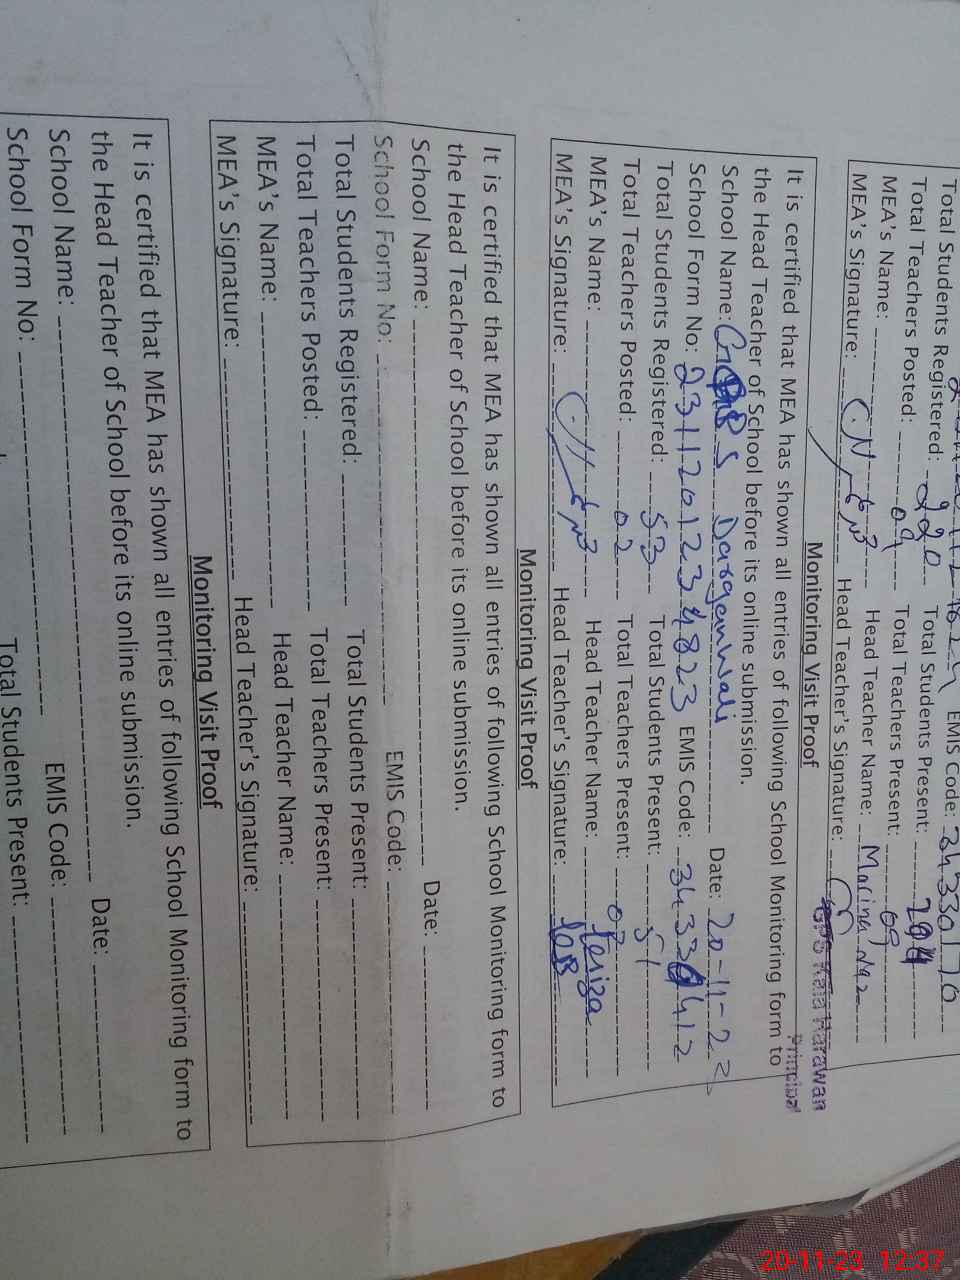 Total Students Registered: 220 Total Students Present: 204
Total Teachers Posted: 09 Total Teachers Present: 09
MEA's Name: Head Teacher Name:
MEA's Signature: Head Teacher's Signature:
Principal
Monitoring Visit Proof
It is certified that MEA has shown all entries of following School Monitoring form to
the Head Teacher of School before its online submission.
School Name: Darganwali Date: 20-11-23
School Form No: 23112012348 23 EMIS Code:
Total Students Registered: 53 Total Students Present: 51
Total Teachers Posted: 02 Total Teachers Present: 02
MEA's Name: Head Teacher Name:
MEA's Signature: Head Teacher's Signature:
Monitoring Visit Proof
It is certified that MEA has shown all entries of following School Monitoring form to
the Head Teacher of School before its online submission.
School Name: Date:
School Form No: EMIS Code:
Total Students Registered: Total Students Present:
Total Teachers Posted: Total Teachers Present:
MEA's Name: Head Teacher Name:
MEA's Signature: Head Teacher's Signature:
Monitoring Visit Proof
It is certified that MEA has shown all entries of following School Monitoring form to
the Head Teacher of School before its online submission.
School Name: Date:
School Form No: EMIS Code:
Total Students Present:
20-11-23 12:37